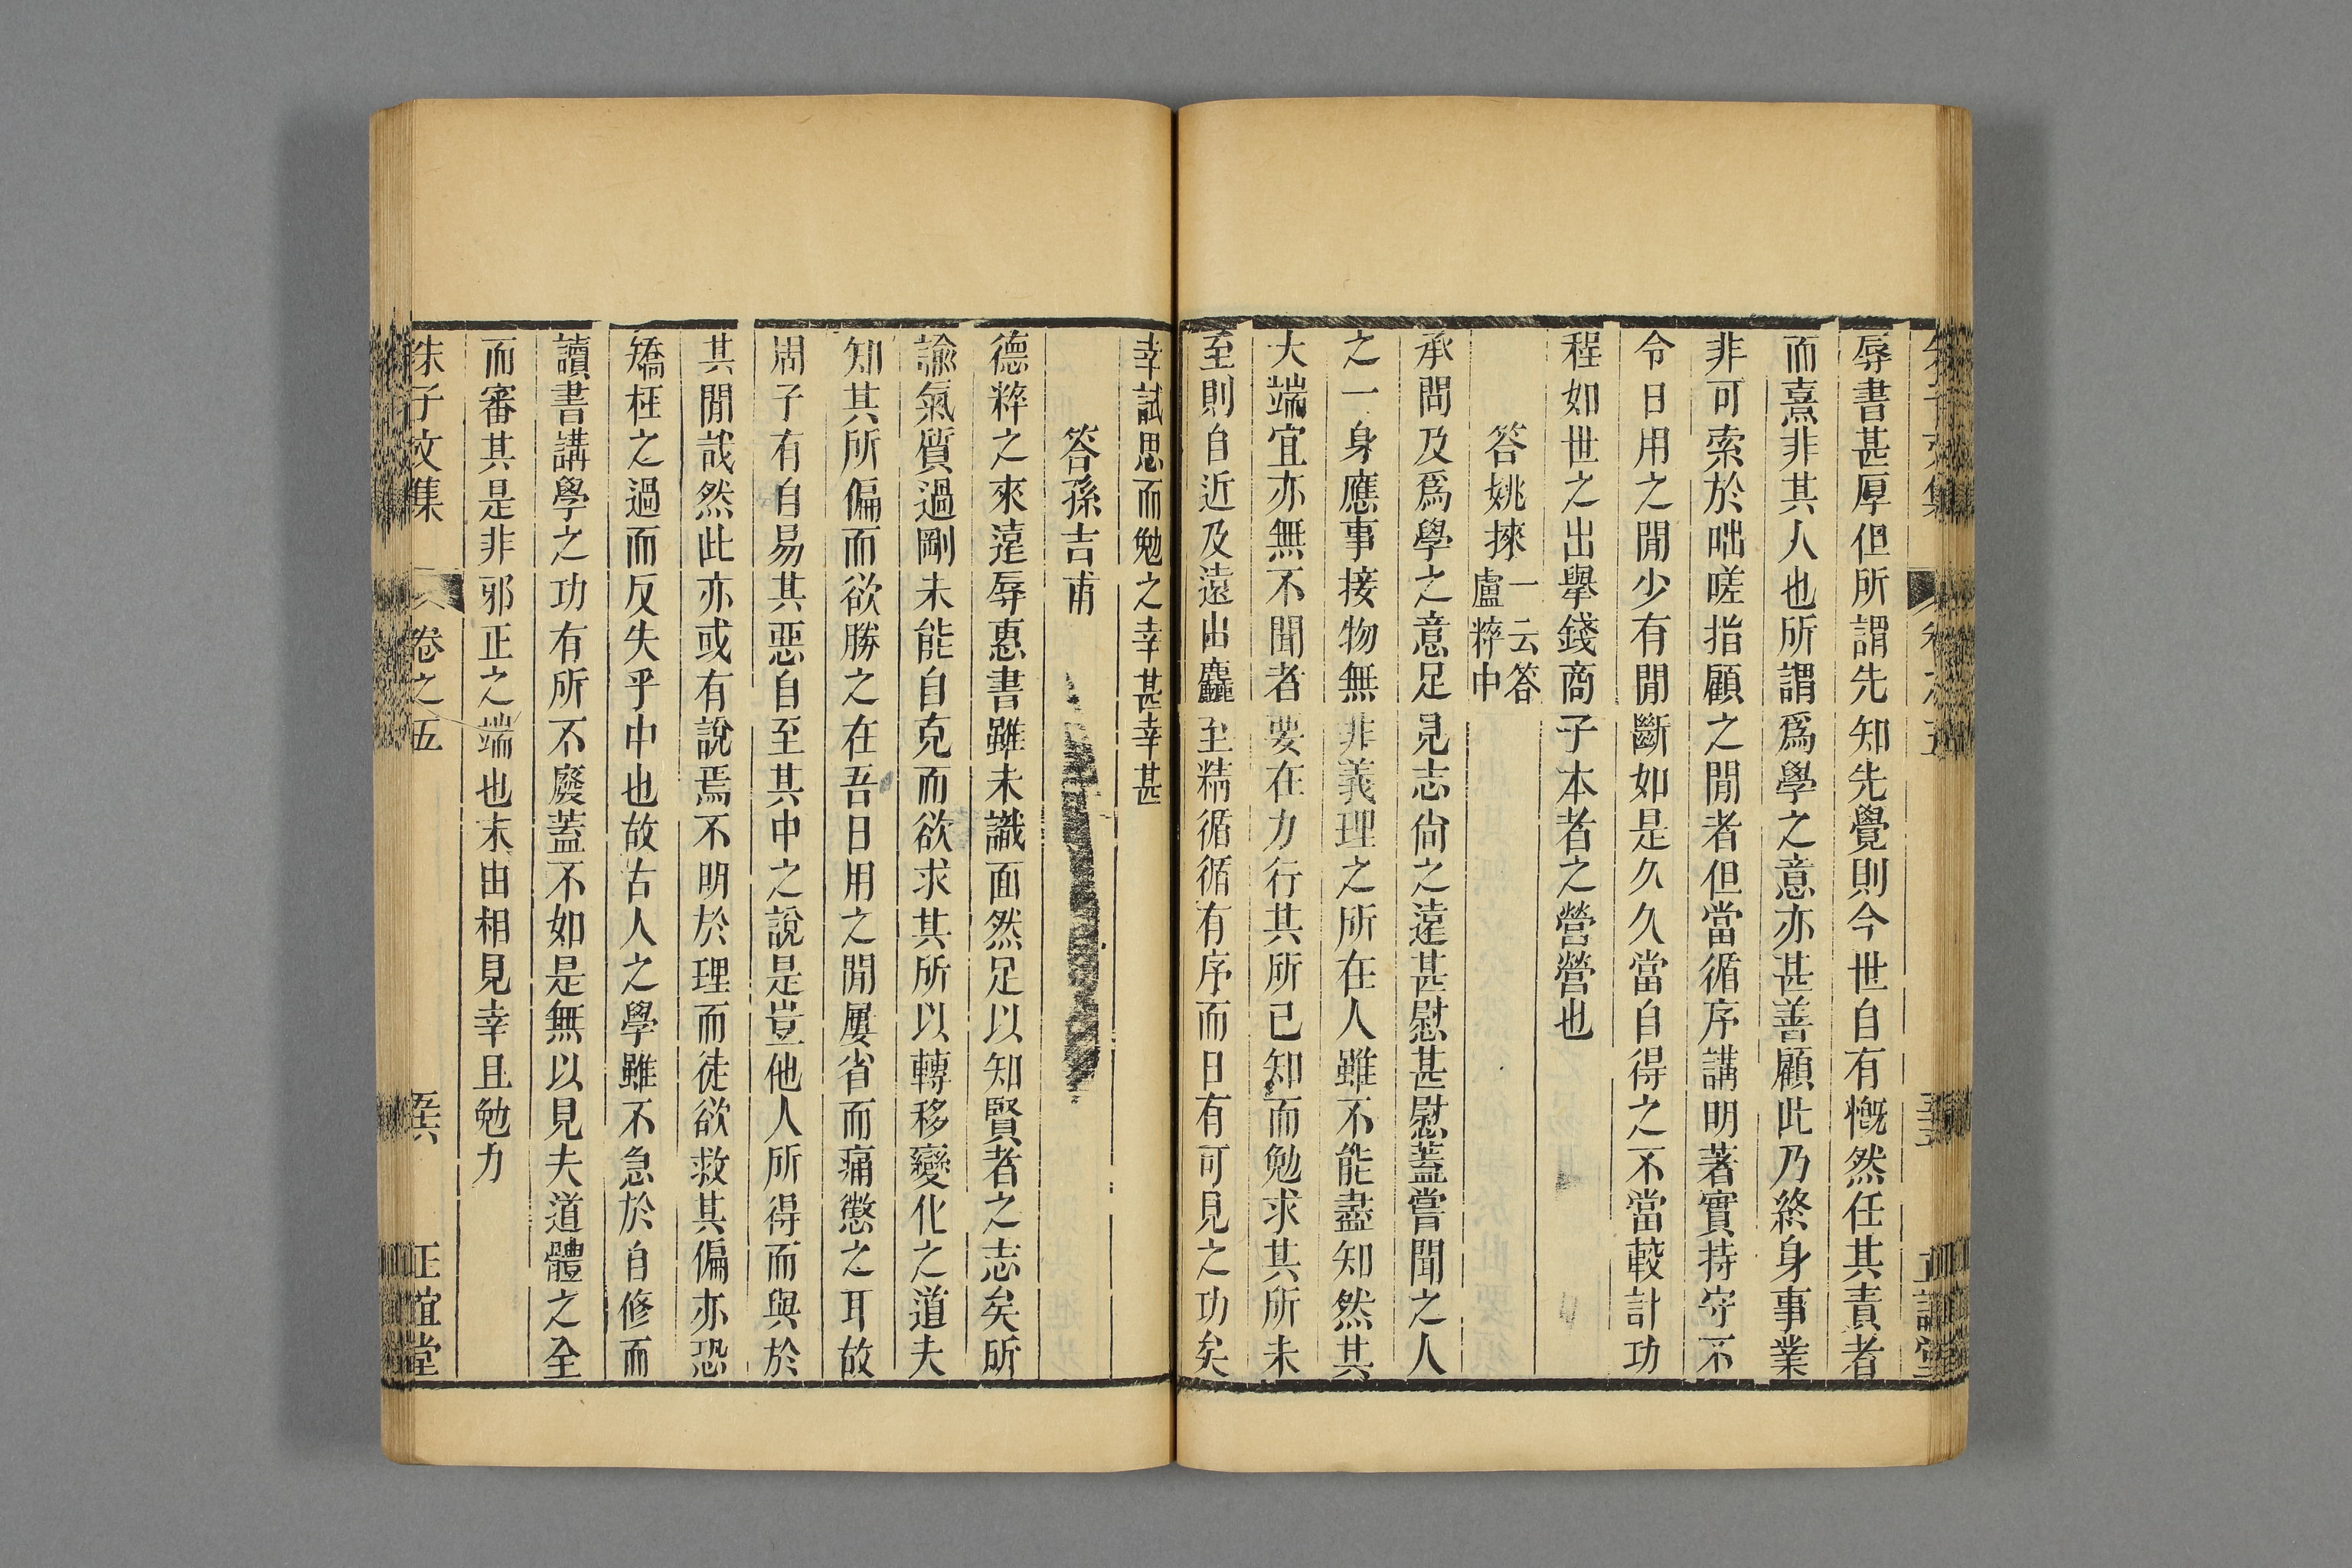 辱書甚厚但所謂先知先覺則今世自有慨然任其責者
而熹非其人也所謂爲學之意亦甚善顧此乃終身事業
非可索於咄嗟指顧之閒者但當循序講明著實持守不
令日用之閒少有閒斷如是久久當自得之不當較計功
程如世之出舉錢商子本者之營營也
答姚揀一云答盧粹中
承問及爲學之意足見志尚之遠甚慰甚慰蓋嘗聞之人
之一身應事接物無非義理之所在人雖不能盡知然其
大端宜亦無不聞者要在力行其所已知而勉求其所未
至則自近及遠由麤至精循循有序而日有可見之功矣
幸試思而勉之幸甚幸甚
答孫吉甫
德粹之來遠辱惠書雖未識面然足以知賢者之志矣所
諭氣質過剛未能自克而欲求其所以轉移變化之道夫
知其所偏而欲勝之在吾日用之閒屢省而痛懲之耳故
周子有自易其惡自至其中之說是豈他人所得而與於
其閒哉然此亦或有說焉不明於理而徒欲救其偏亦恐
矯枉之過而反失乎中也故古人之學雖不急於自修而
讀書講學之功有所不廢蓋不如是無以見夫道體之全
而審其是非邪正之端也未由相見幸且勉力
朱子文集 卷之五 正誼堂